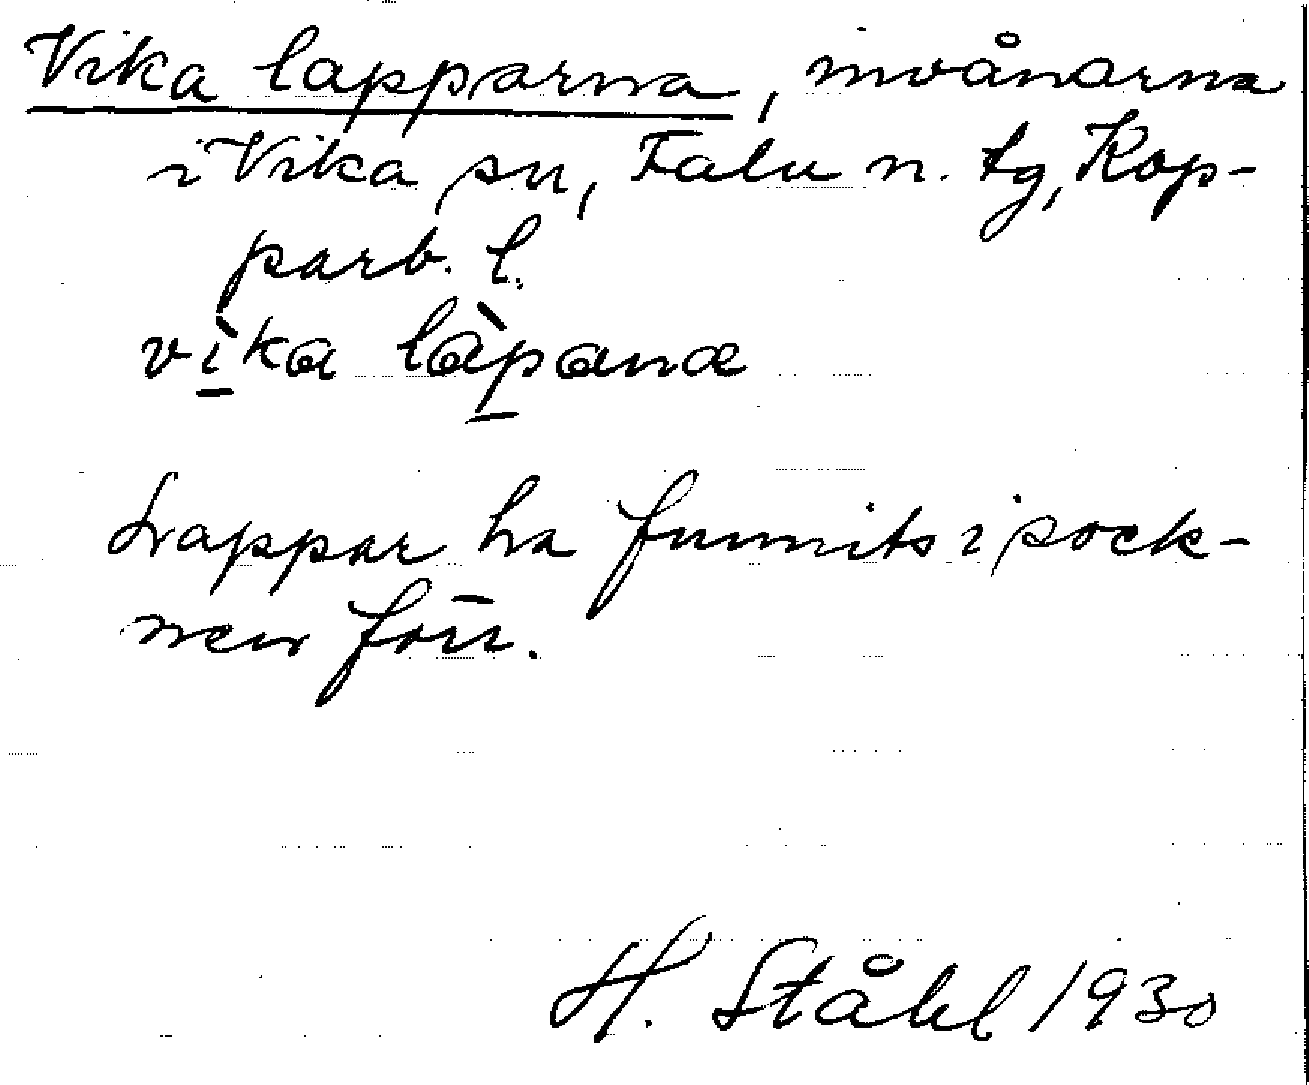 Vika lapparna, invånarna
i Vika sn, Falu n. tg, Kop-
parb. l.
vìka làpanæ
Lappar ha funnits i sock-
nen förr.
H. Ståhl 1930